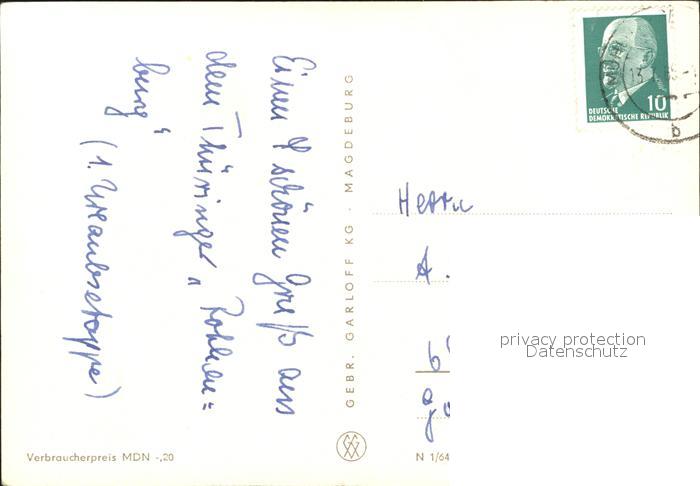 Einen schönen Gruß aus
dem Thüringer "Rothen=
burg"
(1. Urlaubsetappe)
GEBR. GARLOFF KG · MAGDEBURG
10
DEUTSCHE
DEMOKRATISCHE REPUBLIK
b
Herrn
A.
privacy protection
Datenschutz
Verbraucherpreis MDN -,20
N 1/64